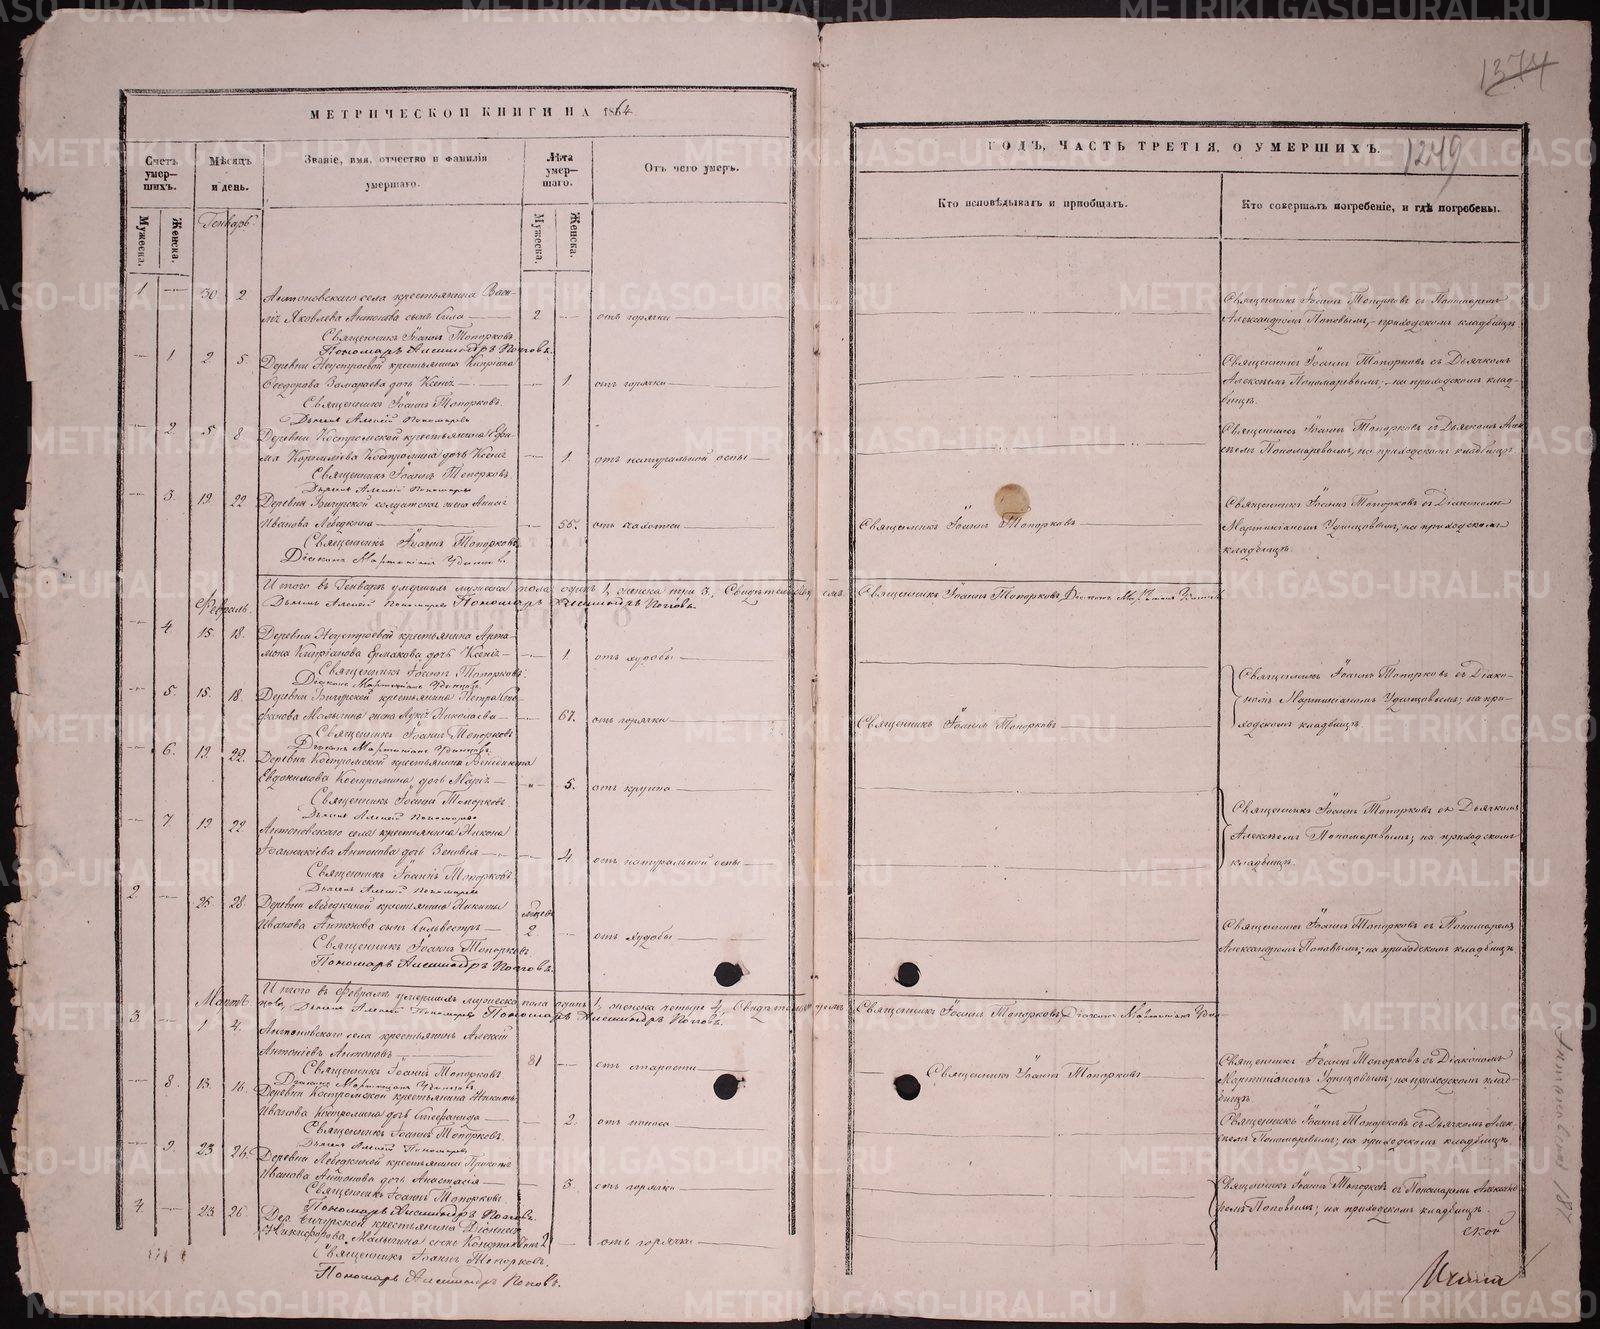 1374
МЕТРИЧЕСКОЙ КНИГИ НА 1864
ГОДЪ, ЧАСТЬ ТРЕТІЯ, О УМЕРШИХЪ.
1249
Счетъ умер-шихъ.
Мѣсяцъ и день.
Званіе, имя, отчество и фамилія умершаго.
Лѣта умер-шаго.
Отъ чего умеръ.
Кто исповѣдывалъ и пріобщалъ.
Кто совершалъ погребеніе, и гдѣ погребены.
Мужеска.
Женска.
Генварь.
Мужеска.
Женска.
1 30 2 Антоновскаго села крестьянина Васи-
лія Яковлева Антонова сынъ 2 отъ горячки
Священникъ Іоаннъ Топорковъ.
Пономарь Александръ Поповъ.
Священникъ Іоаннъ Топорковъ съ Пономаремъ
Александромъ Поповымъ, приходскомъ кладбищѣ
1 2 5 Деревни Неустроевой крестьянина Кипріана
Ѳеодорова Замараева дочь Ксенія 1 отъ горячки
Священникъ Іоаннъ Топорковъ.
Дьячекъ Алексій Пономаревъ
Священникъ Іоаннъ Топорковъ съ Дьячкомъ
Алексѣемъ Пономаревымъ; на приходскомъ клад-
бищѣ.
2 5 8 Деревни Костроминой крестьянина Ефи-
ма Корнилієва Костромина дочь Ксенія 1. отъ натуральной оспы
Священникъ Іоаннъ Топорковъ.
Дьячекъ Алексій Пономаревъ
Священникъ Іоаннъ Топорковъ съ Дьячкомъ Але-
ксѣемъ Пономаревымъ, на приходскомъ кладбищѣ.
3. 19 22 Деревни Бичурской солдатская жена Анна
Иванова Лебедкина 55. отъ чахотки
Священникъ Іоаннъ Топорковъ
Священникъ Іоаннъ Топорковъ.
Діаконъ
Священникъ Іоаннъ Топорковъ съ Діакономъ
Мартиніаномъ Удинцовымъ, на приходскомъ
кладбищѣ.
Итого въ Генварѣ умершихъ мужеска пола одинъ 1, женска три 3. Священникъ Іоаннъ Топорковъ, Діаконъ
Дьячекъ Алексій Пономаревъ Пономарь Александръ Поповъ.
Февраль.
4. 15. 18. Деревни Неустроевой крестьянина Арта-
мона Кипріанова Ермакова дочь Ксенія 1. отъ худобы
Священникъ Іоаннъ Топорковъ.
5. 15. 18. Деревни Бичурской крестьянина Петра
Малыгина жена Николаева 67. отъ горячки
Священникъ Іоаннъ Топорковъ
Священникъ Іоаннъ Топорковъ
Священникъ Іоаннъ Топорковъ съ Діако-
номъ Мартиніаномъ Удинцовымъ; на при-
ходскомъ кладбищѣ
6. 19 22. Деревни Костроминой крестьянина Венедикта
Евдокимова Костромина дочь Марія 5. отъ крупа
Священникъ Іоаннъ Топорковъ.
Дьячекъ Алексій Пономаревъ
7. 19 22 Антоновскаго села крестьянина Никона
Антонова дочь Зеновья 4. отъ натуральной оспы
Священникъ Іоаннъ Топорковъ
Дьячекъ Алексій Пономаревъ
Священникъ Іоаннъ Топорковъ съ Дьячкомъ
Алексѣемъ Пономаревымъ; на приходскомъ
кладбищѣ.
2. 25 28. Деревни Лебедкиной крестьянина Никиты
Иванова Антонова сынъ Сильвестръ 2 отъ худобы
Священникъ Іоаннъ Топорковъ
Пономарь Александръ Поповъ.
Священникъ Іоаннъ Топорковъ съ Пономаремъ
Александромъ Поповымъ; на приходскомъ кладбищѣ.
Итого въ Февралѣ умершихъ мужеска пола одинъ 1, женска четыре 4.
Дьячекъ Алексій Пономаревъ Пономарь Александръ Поповъ.
Священникъ Іоаннъ Топорковъ, Діаконъ
Мартъ.
3. 1 4. Антоновскаго села крестьянинъ Алексій
Антоновъ 81 отъ старости
Священникъ Іоаннъ Топорковъ
Священникъ Іоаннъ Топорковъ
Священникъ Іоаннъ Топорковъ съ Діакономъ
Мартиніаномъ Удинцовымъ; на приходскомъ клад-
бищѣ
8. 13. 16. Деревни Костроминой крестьянина
Иванова Костромина дочь 2. отъ поноса
Священникъ Іоаннъ Топорковъ.
Дьячекъ Алексій Пономаревъ
Священникъ Іоаннъ Топорковъ съ Дьячкомъ Але-
ксѣемъ Пономаревымъ; на приходскомъ кладбищѣ
9. 23 26. Деревни Лебедкиной крестьянина
Иванова Антонова дочь Анастасія 3. отъ горячки
Священникъ Іоаннъ Топорковъ
Пономарь Александръ Поповъ.
4. 23 26. Дер. Бичурской крестьянина
Никифорова Малыгина сынъ Константинъ 2 отъ горячки
Священникъ Іоаннъ Топорковъ.
Пономарь Александръ Поповъ.
Священникъ Іоаннъ Топорковъ съ Пономаремъ Алексан-
дромъ Поповымъ; на приходскомъ кладбищѣ.
METRIKI.GASO-URAL.RU